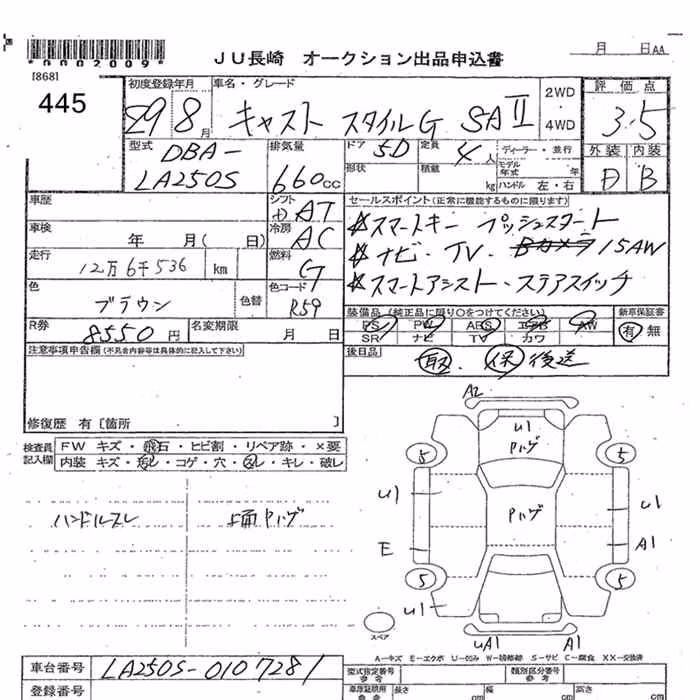 *0002009*
JU長崎 オークション出品申込書
月 日 AA
[868]
445
初度登録年月 車名・グレード 2WD ・ 4WD 評価点
29 8月 キャスト スタイルG SAⅡ 3.5
型式 排気量 ドア 5D 定員 4人 ディーラー・並行 外装 内装
DBA-
LA250S 660cc 形状 積載 kg モデル年式 年 ハンドル 左・右 D B
車歴 シフト AT セールスポイント(正常に機能するものに限ります)
車検 年 月( 日) 冷房 AC
☆スマートキー プッシュスタート
☆ナビ・TV・Bカメラ 15AW
☆スマートアシスト・ステアスイッチ
走行 12万6千536 km 燃料 G
色 ブラウン 色替 色コード R59
装備品(純正品に限り○をつけてください) 新車保証書
PS PW ABS エアB AW 有 無
SR ナビ TV カワ
R券 8550円 名変期限 月 日
後日品 取.保 後送
注意事項申告欄(不具合内容等は具体的に記入して下さい)
修復歴 有[箇所 ]
検査員記入欄 FW キズ・飛石・ヒビ割・リペア跡・×要
内装 キズ・汚レ・コゲ・穴・スレ・キレ・破レ
ハンドルスレ 上面Pハゲ
A2
U1
Pハゲ
5 5
U1 Pハゲ U1
E A1
5 5
U1
スペア UA1 A1
A-キズ E-エクボ U-凹み W-補修跡 S-サビ C-腐食 XX-交換済
車台番号 LA250S-0107281
型式指定番号 類別区分番号
登録番号
長さ cm 幅 cm 高さ cm